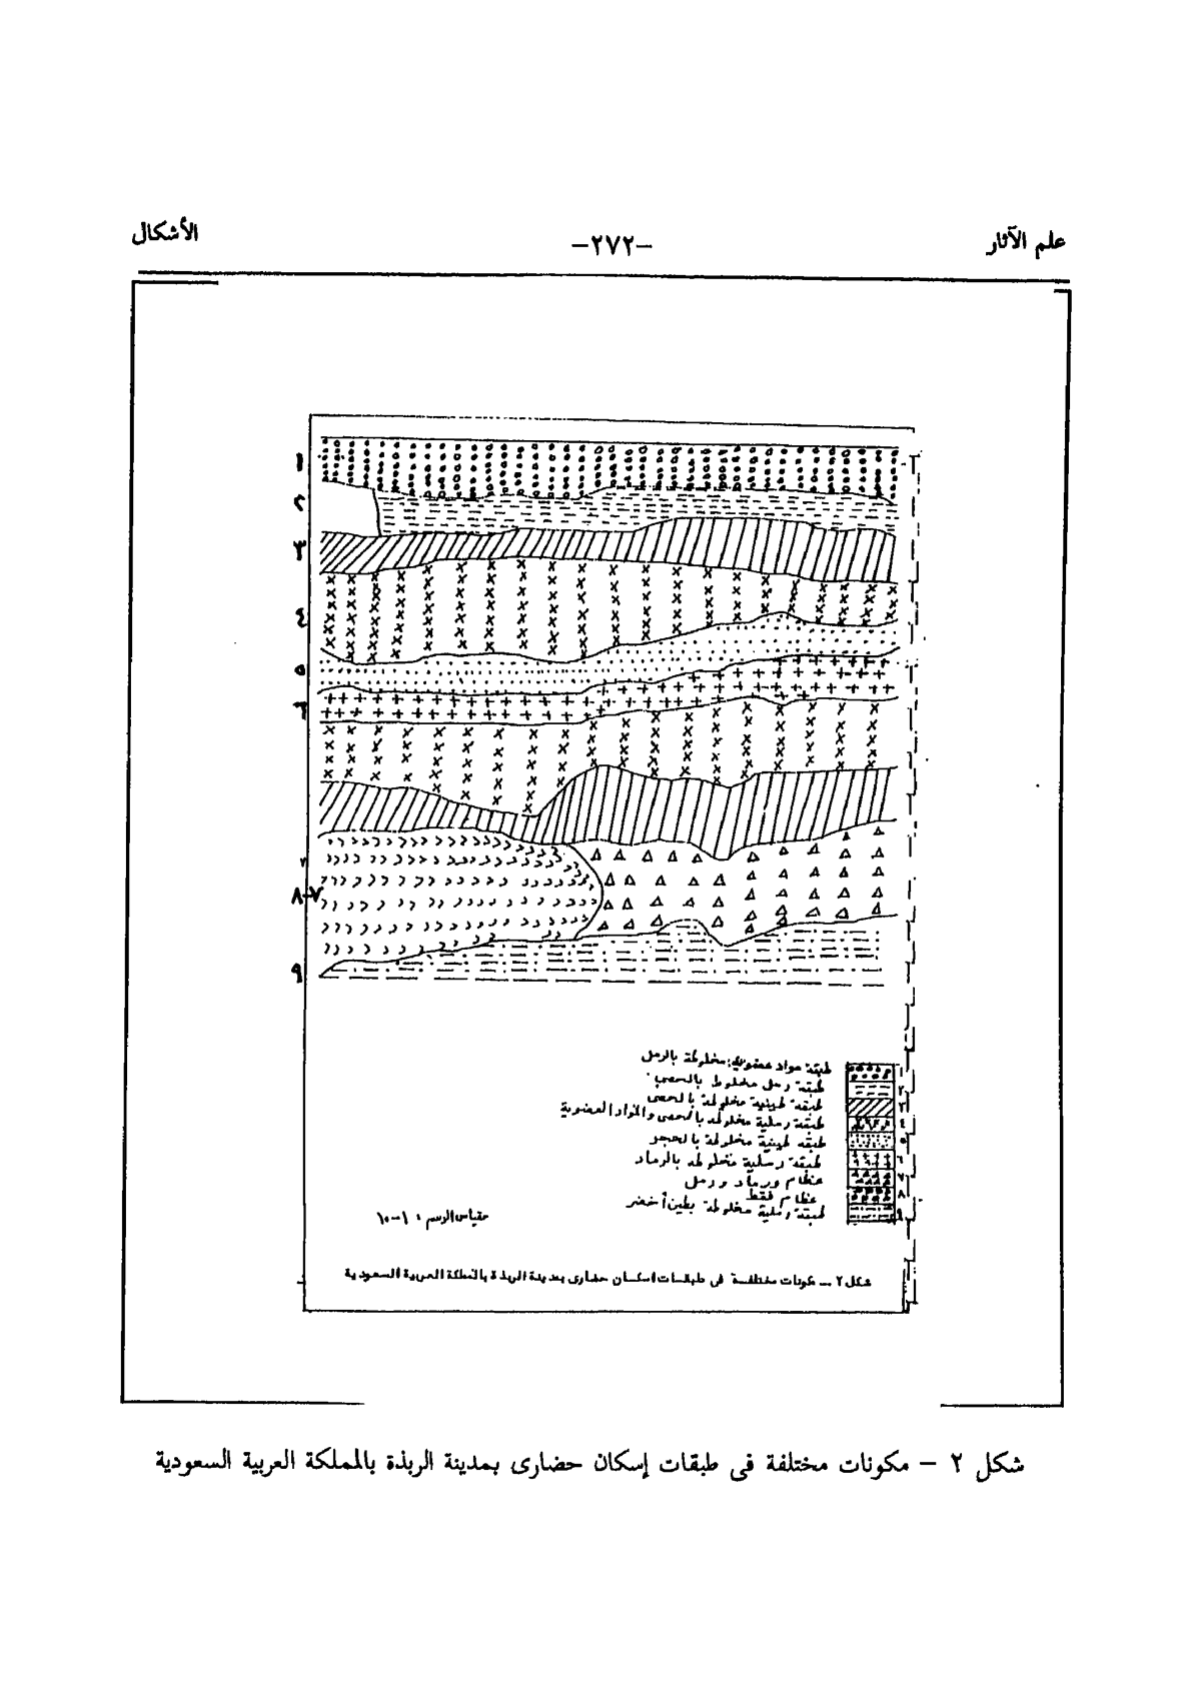 علم الآثار
–٢٧٢–
الأشكال
١
٢
٣
٤
٥
٦
٨-٧
٩
١ طبقة مواد عضوية مخلوطة بالرمل
٢ طبقة رمل مخلوط بالحصى
٣ طبقة طينية مخلوطة بالحصى
٤ طبقة رملية مخلوطة بالحصى والمواد العضوية
٥ طبقة طينية مخلوطة بالحجر
٦ طبقة رملية مخلوطة بالرماد
٧ عظام ورماد ورمل
٨ عظام فقط
٩ طبقة رملية مخلوطة بطين أخضر
مقياس الرسم : ١-١٠
شكل ٢ – مكونات مختلفة فى طبقات اسكان حضارى بمدينة الربذة بالمملكة العربية السعودية
شكل ٢ – مكونات مختلفة فى طبقات إسكان حضارى بمدينة الربذة بالمملكة العربية السعودية